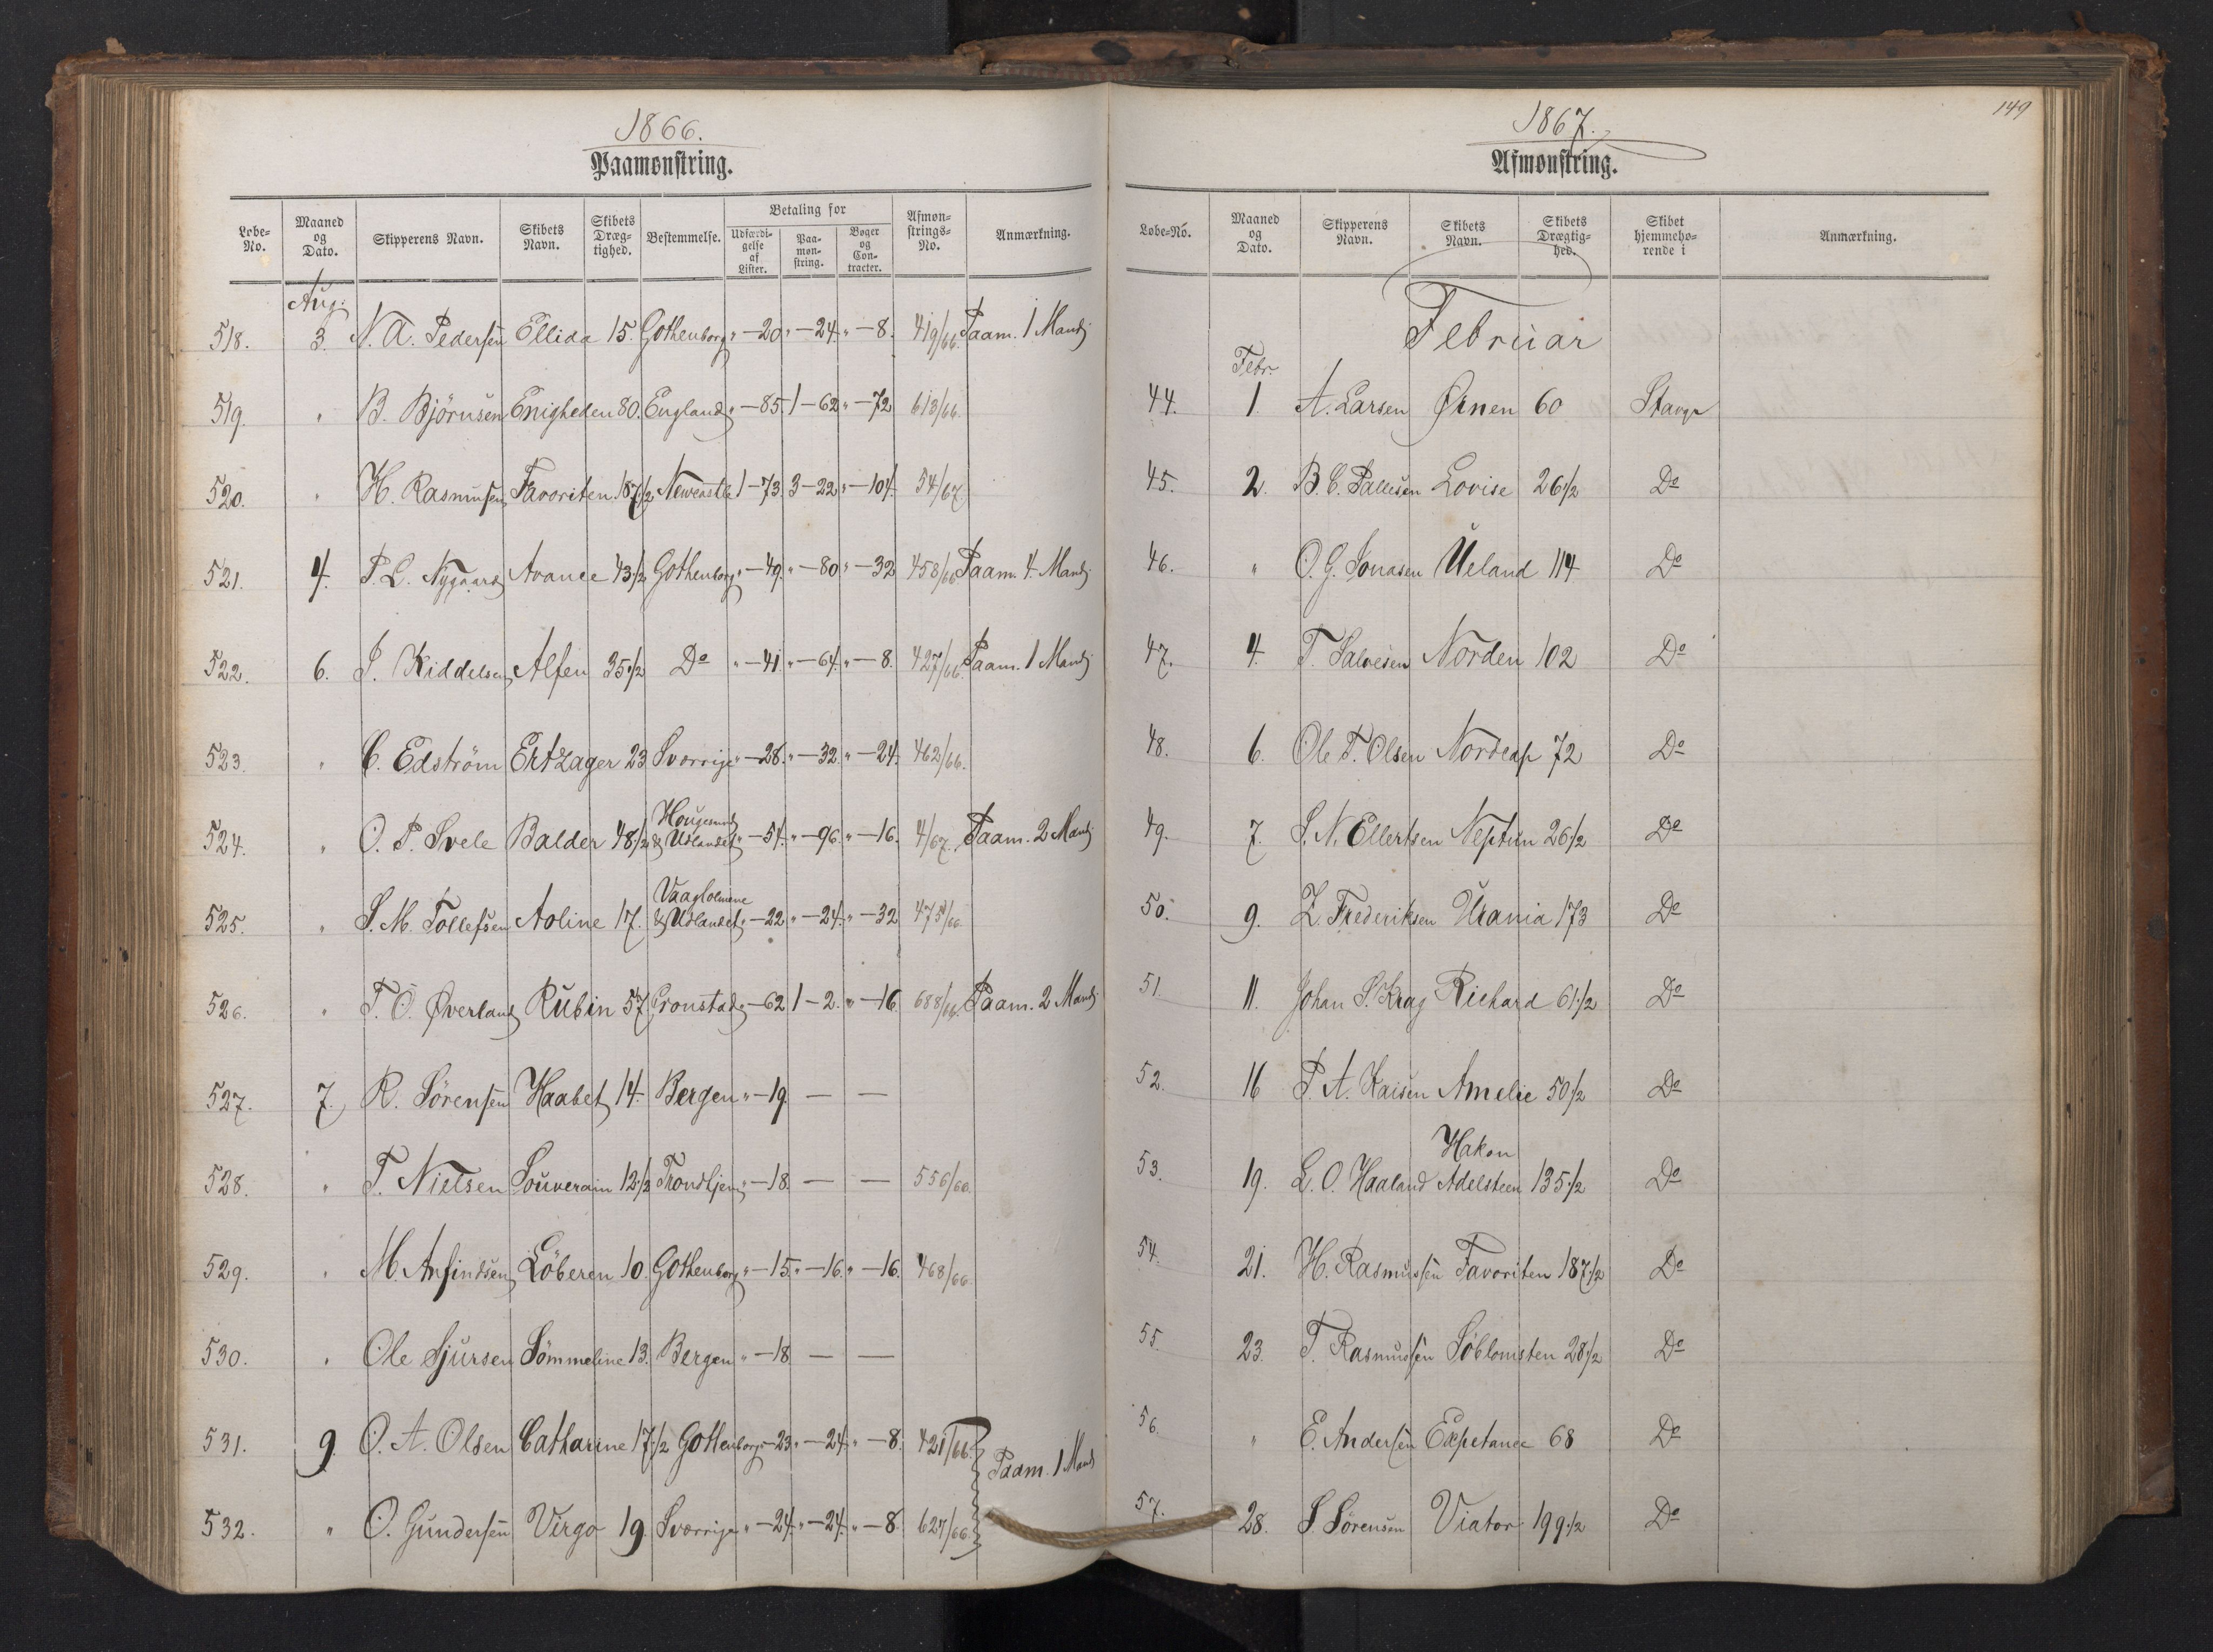 1866.
Paamønstring.
Løbe-No. Maaned og Dato. Skipperens Navn. Skibets Navn. Skibets Dræg-tighed. Bestemmelse. Betaling for Udfærdi-gelse af Lister. Paa-møn-string. Bøger og Con-tracter. Afmøn-strings-No. Anmærkning.
Aug:
518. 3. N. A. Pedersen Ellida 15. Gothenborg " - 20 " - 24. " - 8. 419/66. Paam. 1 Mand
519. " B. Björnsen Enigheden 80. England " - 85. 1 - 62 " - 72 613/66.
520. " H. Rasmussen Favoriten 187 1/2 Newcastle 1 - 73. 3 - 22 " - 104. 54/67
521. 4. P. L. Nygaard Avance 43 1/2 Gothenborg " - 49. " - 80 " - 32 458/66 Paam. 4. Mand
522. 6. J. Kiddelsen Alfen 35 1/2 Do " - 41. " - 64. " - 8. 427/66. Paam. 1 Mand
523. " C. Edström Ertzager 23 Sverrige " - 28. " - 32. " - 24. 462/66.
524. " O. P. Svele Balder 48 1/2 Hougesund & Udlandet " - 54. " - 96. " - 16. 4/67. Paam. 2 Mand
525. " S. M. Tollefsen Aoline 17. Vaagholmene & Udlandet " - 22 " - 24. " - 32 475/66
526. " T. O. Øverland Rubin 57. Cronstad " - 62 1 - 2. " - 16. 688/66. Paam. 2 Mand
527. 7. R. Sörensen Haabet 14. Bergen " - 19. — —
528. " T. Nielsen Souverain 12 1/2 Trondhjem " - 18. — — 556/66.
529. " M. Anfindsen Löberen 10. Gothenborg " - 15. " - 16. " - 16. 468/66.
530. " Ole Sjursen Sömmeline 13. Bergen " - 18 — —
531. 9 O. A. Olsen Catharine 17 1/2 Gothenborg " - 23. " - 24. " - 8. 421/66.
Paam. 1 Mand
532. " O. Gundersen Virgo 19 Sverrige " - 24. " - 24. " - 8. 627/66.
149
1867.
Afmønstring.
Løbe-No. Maaned og Dato. Skipperens Navn. Skibets Navn. Skibets Drægtig-hed. Skibet hjemmehø-rende i Anmærkning.
Februar
Febr.
44. 1. A. Larsen Ørnen 60 Stavgr
45. 2. B. C. Pallesen Lovise 26 1/2 Do
46. " O. G. Jonasen Ueland 114 Do
47. 4. T. Salvesen Norden 102 Do
48. 6. Ole T. Olsen Nordcap 72 Do
49. 7. S. N. Ellertsen Neptun 26 1/2 Do
50. 9. Z. Frederiksen Urania 173 Do
51. 11. Johan S. Krag Richard 61 1/2 Do
52. 16 P. A. Kaisen Amelie 50 1/2 Do
53. 19. L. O. Haaland Hakon Adelsteen 135 1/2 Do
54. 21. H. Rasmussen Favoriten 187 1/2 Do
55. 23. T. Rasmussen Söblomsten 28 1/2 Do
56. " E. Andersen Expetance 68 Do
57. 28. S. Sörensen Viator 199 1/2 Do